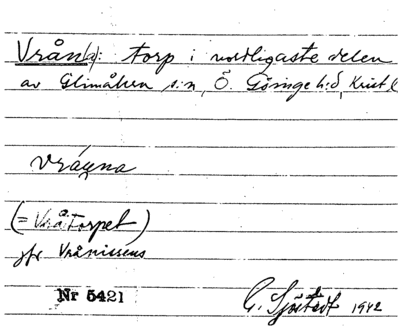 Vrån(a): torp i nordligaste delen
av Glimåkra s:n, Ö. Göinge h:d, Krist. l
vråṇna
(= Vråtorpet)
jfr Vrånissens
Nr 5421 G. Sjöstedt 1942